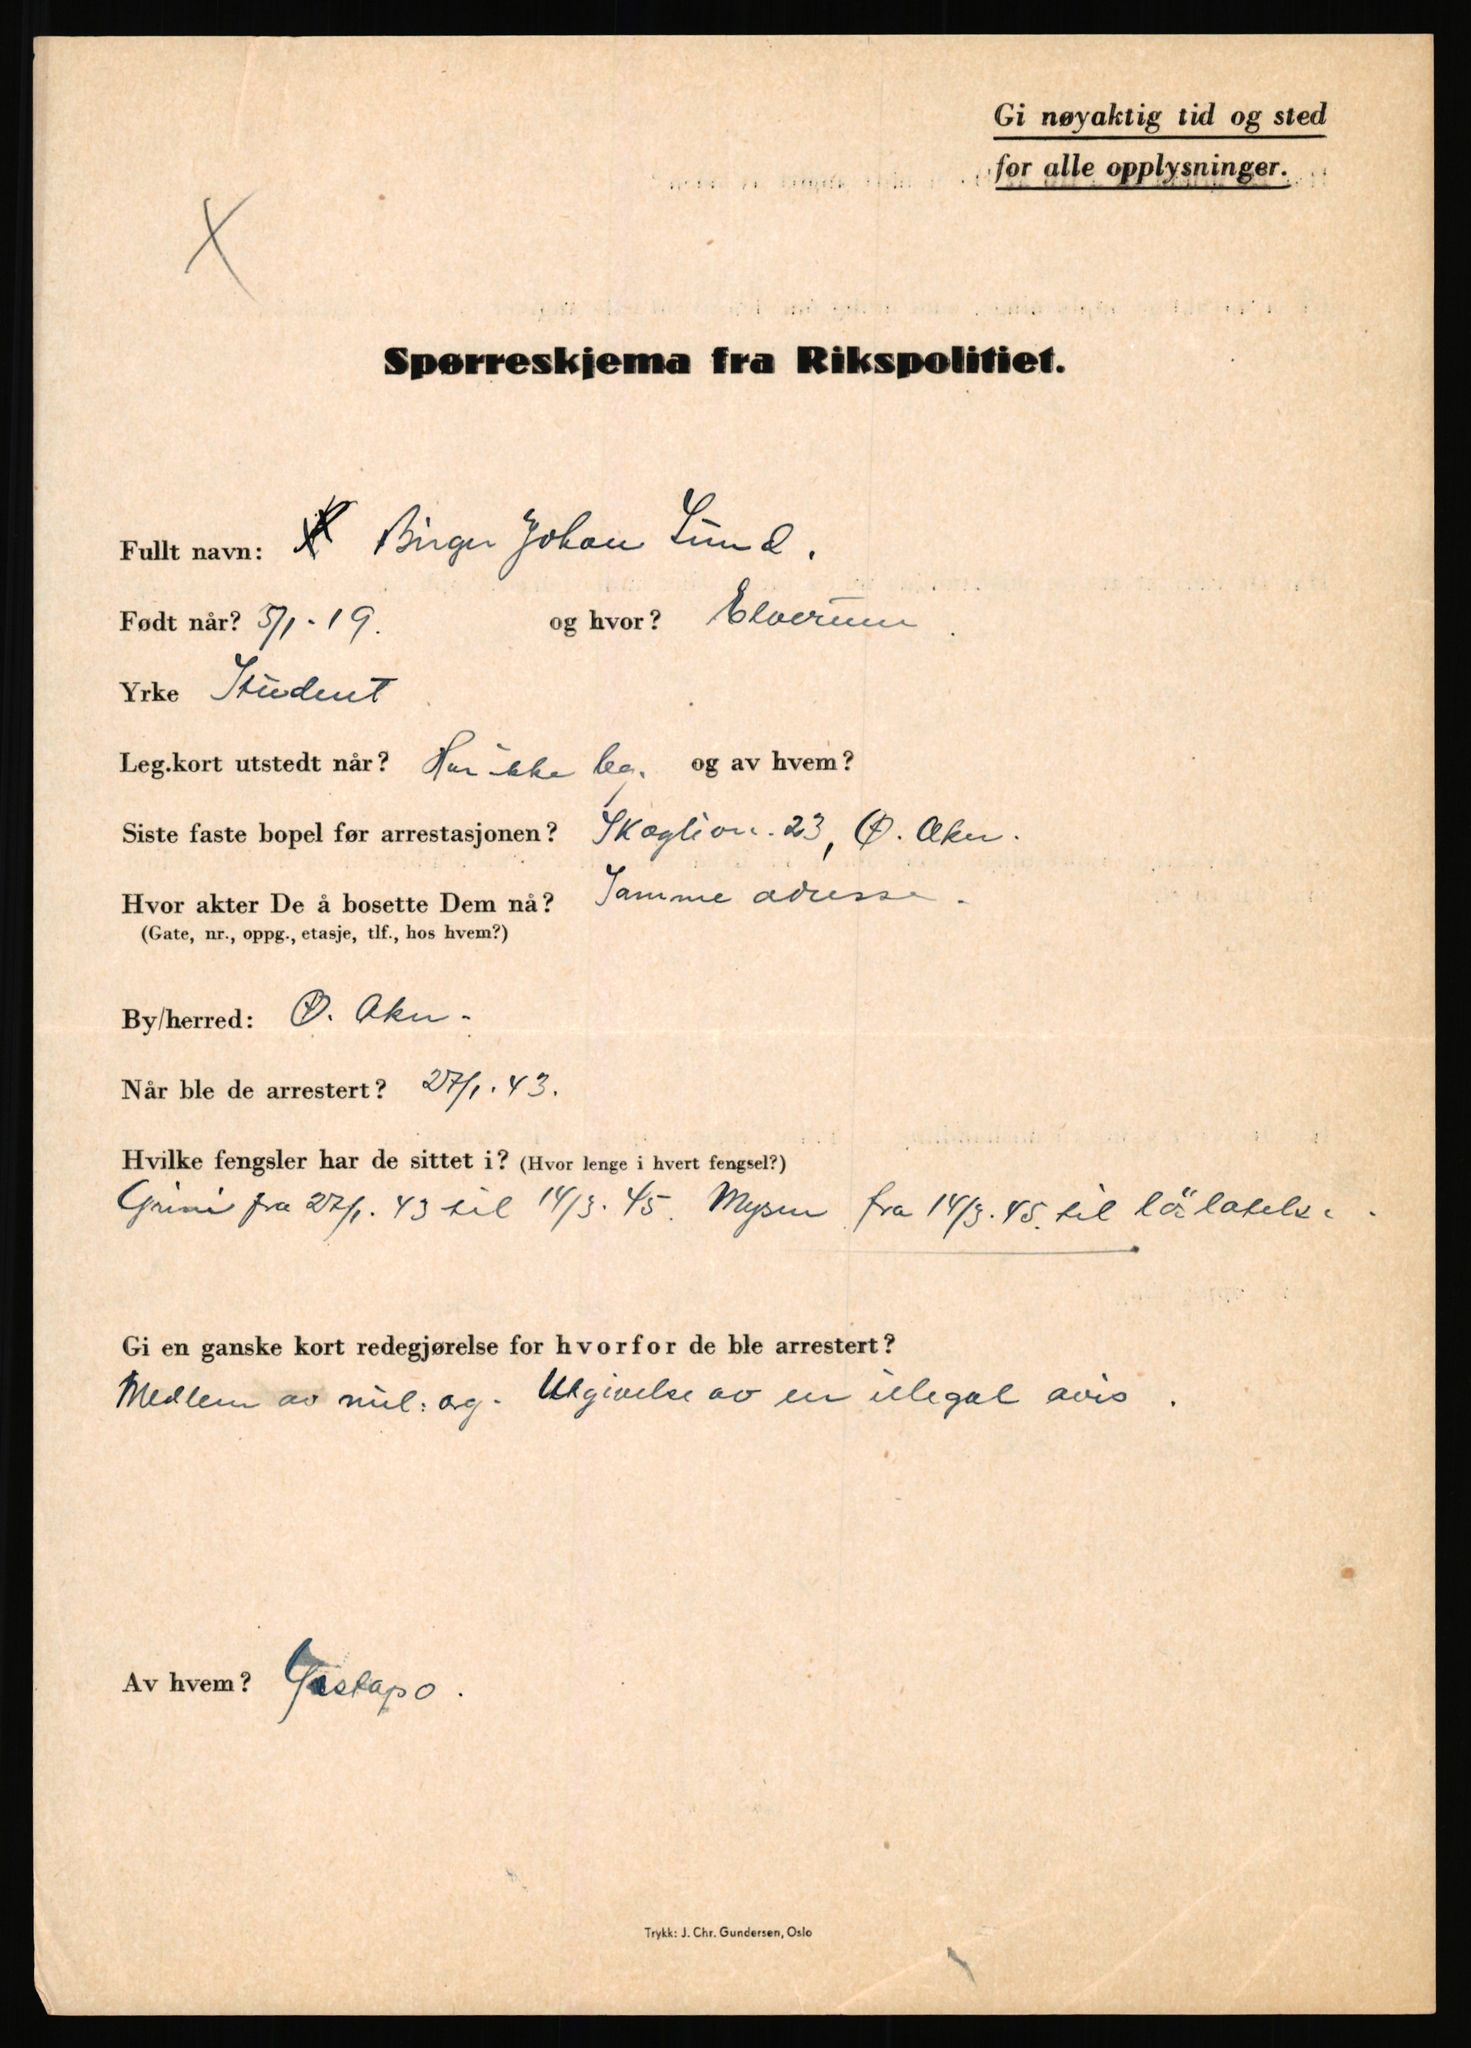 Gi nøyaktig tid og sted
for alle opplysninger.
X
Spørreskjema fra Rikspolitiet.
Fullt navn: X Birger Johan Lund.
Født når? 5/1.19. og hvor? Elverum.
Yrke Student
Leg.kort utstedt når? Har ikke leg. og av hvem?
Siste faste bopel før arrestasjonen? 23, Ø. Aker.
Hvor akter De å bosette Dem nå? Samme adresse.
(Gate, nr., oppg., etasje, tlf., hos hvem?)
By/herred: Ø. Aker.
Når ble de arrestert? 27/1.43.
Hvilke fengsler har de sittet i? (Hvor lenge i hvert fengsel?)
Grini fra 27/1.43 til 14/3.45. Mysen fra 14/3.45. til løslatelse.
Gi en ganske kort redegjørelse for hvorfor de ble arrestert?
Medlem av mil.org. Utgivelse av en illegal avis.
Av hvem? Gestapo.
Trykk: J. Chr. Gundersen, Oslo